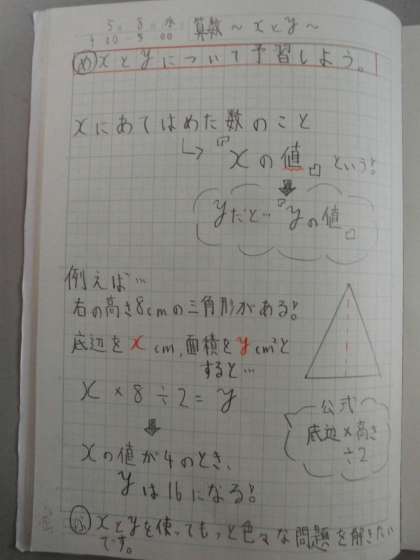 算数 ～xとy～
め xとyについて予習しよう。
xにあてはめた数のこと
↳『xの値』という!
yだと…『yの値』
例えば…
右の高さ8cmの三角形がある!
底辺をx cm,面積をy cm²と
すると…
x × 8 ÷ 2 = y
公式
底辺×高さ
÷2
xの値が4のとき、
yは16になる!
ふ xとyを使ってもっと色々な問題を解きたい
です。